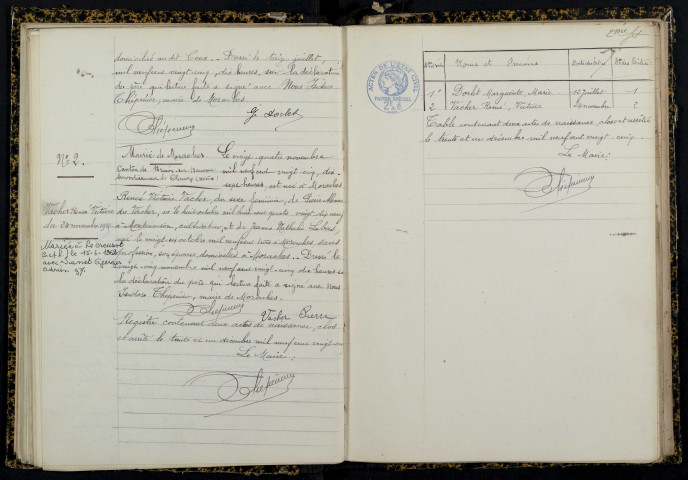 domiciliés audit Cons. Dressé le treize juillet,
mil neuf cent vingt cinq, dix heures, sur la déclaration
du père qui lecture faite a signé avec Nous Isidore
Thépénier, maire de Moraches
G. Dorlet
Thépénier
N° 2.
Mairie de Moraches
Canton de Brinon
Arrondissement de Clamecy
Le vingt quatre novembre
mil neuf cent vingt cinq, dix
sept heures, est née à Moraches
Renée Victoire Vacher, du sexe féminin, de Pierre
Vacher, né le huit octobre mil huit cent quatre vingt dix neuf
à cultivateur, et de Jeanne Mathilde
née le vingt six octobre mil neuf cent trois à Moraches sans
profession, son épouse domiciliés à Moraches. Dressé le
vingt cinq novembre mil neuf cent vingt cinq dix heures sur
la déclaration du père qui lecture faite a signé avec Nous
Isidore Thépénier, maire de Moraches.
Vacher Renée Victoire
du 24 novembre 1925
Mariée à Le Creusot
(S et L) le 15-6-
avec Georges
Thépénier
Vacher Pierre
Registre contenant deux actes de naissance, clos
et arrêté le trente et un décembre mil neuf cent vingt cinq
Le Maire:
Thépénier
2me
ACTES DE L'ETAT CIVIL
PAPIER SPECIAL
Noms et Prénoms
1 Dorlet Marguerite, Marie 12 juillet 1
2 Vacher Renée, Victoire 24 novembre 2
Table contenant deux actes de naissance, close et arrêtée
le trente et un décembre mil neuf cent vingt cinq.
Le Maire:
Thépénier